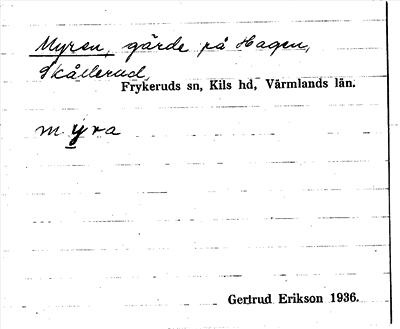 Myren, gärde på Hagen,
Skållerud,
Frykeruds sn, Kils hd, Värmlands län.
myra
Gertrud Erikson 1936.